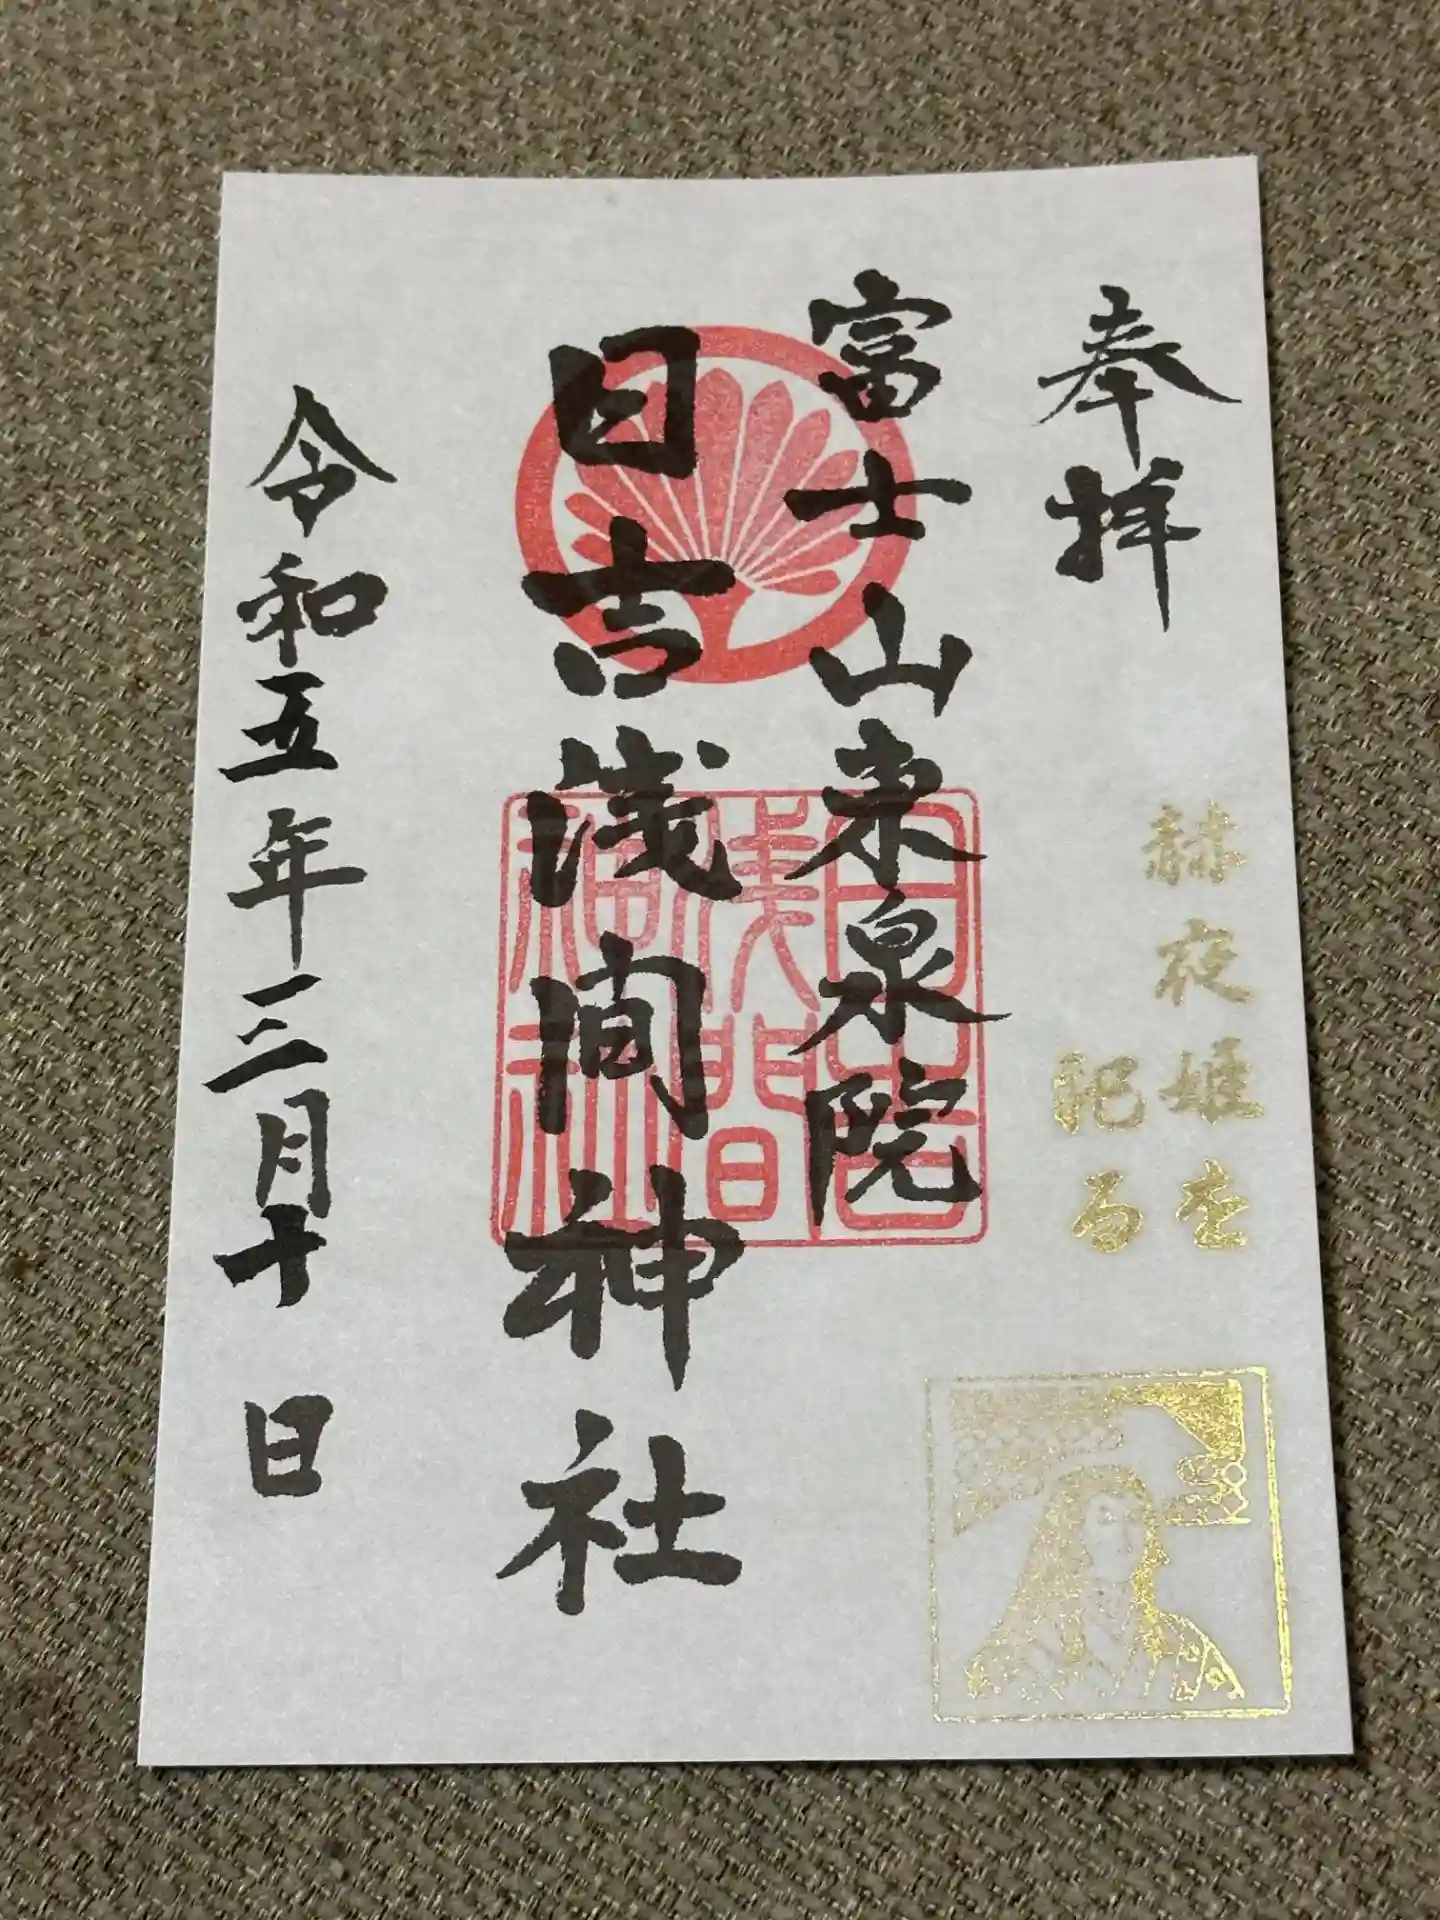 奉拝
赫夜姫を
祀る
富士山東泉院
日吉浅間神社
日吉
浅間
神社
令和五年三月十日